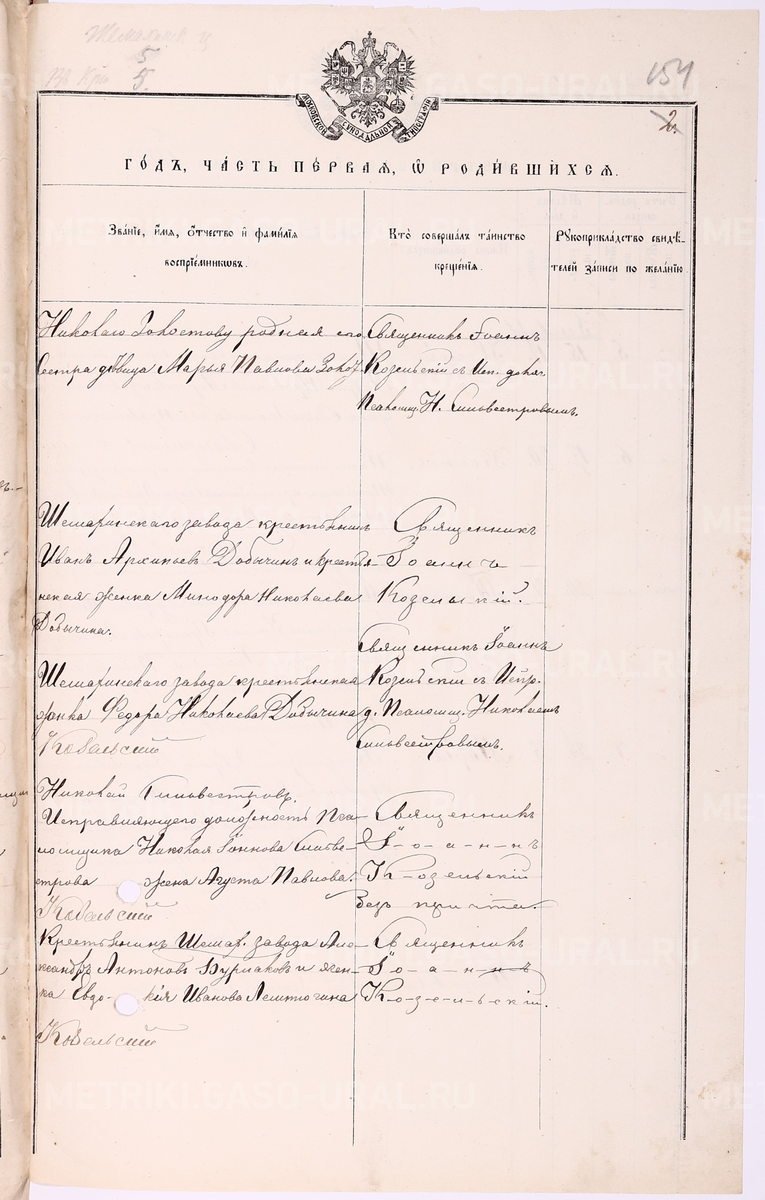 154
2.
МОСКОВСКОЙ СѴНОДАЛЬНОЙ ТИПОГРАФІИ
ГО́ДЪ, ЧА́СТЬ ПЕ́РВАЯ, Ѡ РОДИ́ВШИХСЯ.
Зва́ніе, и́мя, о́тчество и фами́лія
воспріе́мниковъ.
Кто̀ соверша́лъ та́инство
креще́нія.
Рукоприкла́дство свидѣ́-
телей за́писи по жела́нію
Николаю родная его
Сестра дѣвица Марья Павлова
Священникъ Іоаннъ
Козельскій съ Исп. долж.
Псаломщ. Н. Сильвестровымъ.
Шемахинскаго завода крестьянинъ
Иванъ Архиповъ Добычинъ и крестья-
нская женка Минодора Николаева
Добычина.
Священникъ
Іоаннъ
Козельскій.
Шемахинскаго завода крестьянская
женка Федора Николаева Добычина
Козельскій
Священникъ Іоаннъ
Козельскій съ Испр.
д. Псаломщ. Николаемъ
Сильвестровымъ.
Николай Сильвестровъ.
Исправляющего должность Пса-
ломщика Николая Іоаннова Сильве-
строва жена Августа Павлова.
Козельскій
Священникъ
І-о-а-н-н-ъ
К-озельскій
безъ причта.
Крестьянинъ Шемах. завода Але-
ксандръ Антоновъ Бурмаковъ и жен-
ка Евдо- кія Иванова Лентюгина
Козельскій
Священникъ
І-о-а-н-нъ
К-о-з-е-льскій.
METRIKI.GASO-URAL.RU